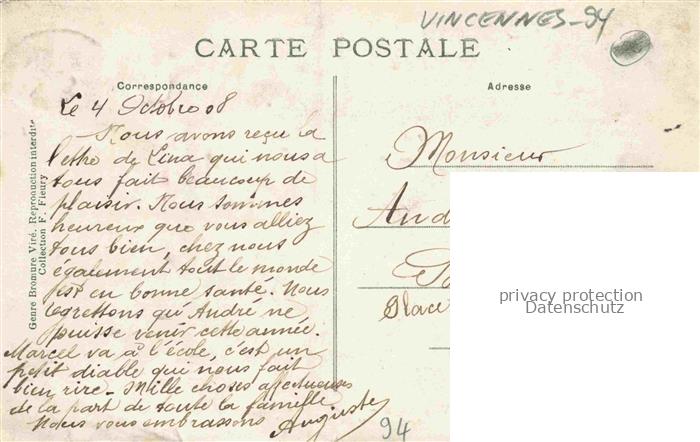 VINCENNES-94
CARTE POSTALE
Correspondance
Adresse
Genre Bromure Viré. Reproduction interdite
Collection F. Fleury
Le 4 Octobre 08
Nous avons reçu la
lettre de Lina qui nous a
tous fait beaucoup de
plaisir. Nous sommes
heureux que vous alliez
tous bien, chez nous
également tout le monde
est en bonne santé. Nous
regrettons qu'André ne
puisse venir cette année.
Marcel va à l'école, c'est un
petit diable qui nous fait
bien rire - Mille choses affectueuses
de la part de toute la famille
Nous vous embrassons Auguste
Monsieur
And
Place
privacy protection
Datenschutz
94